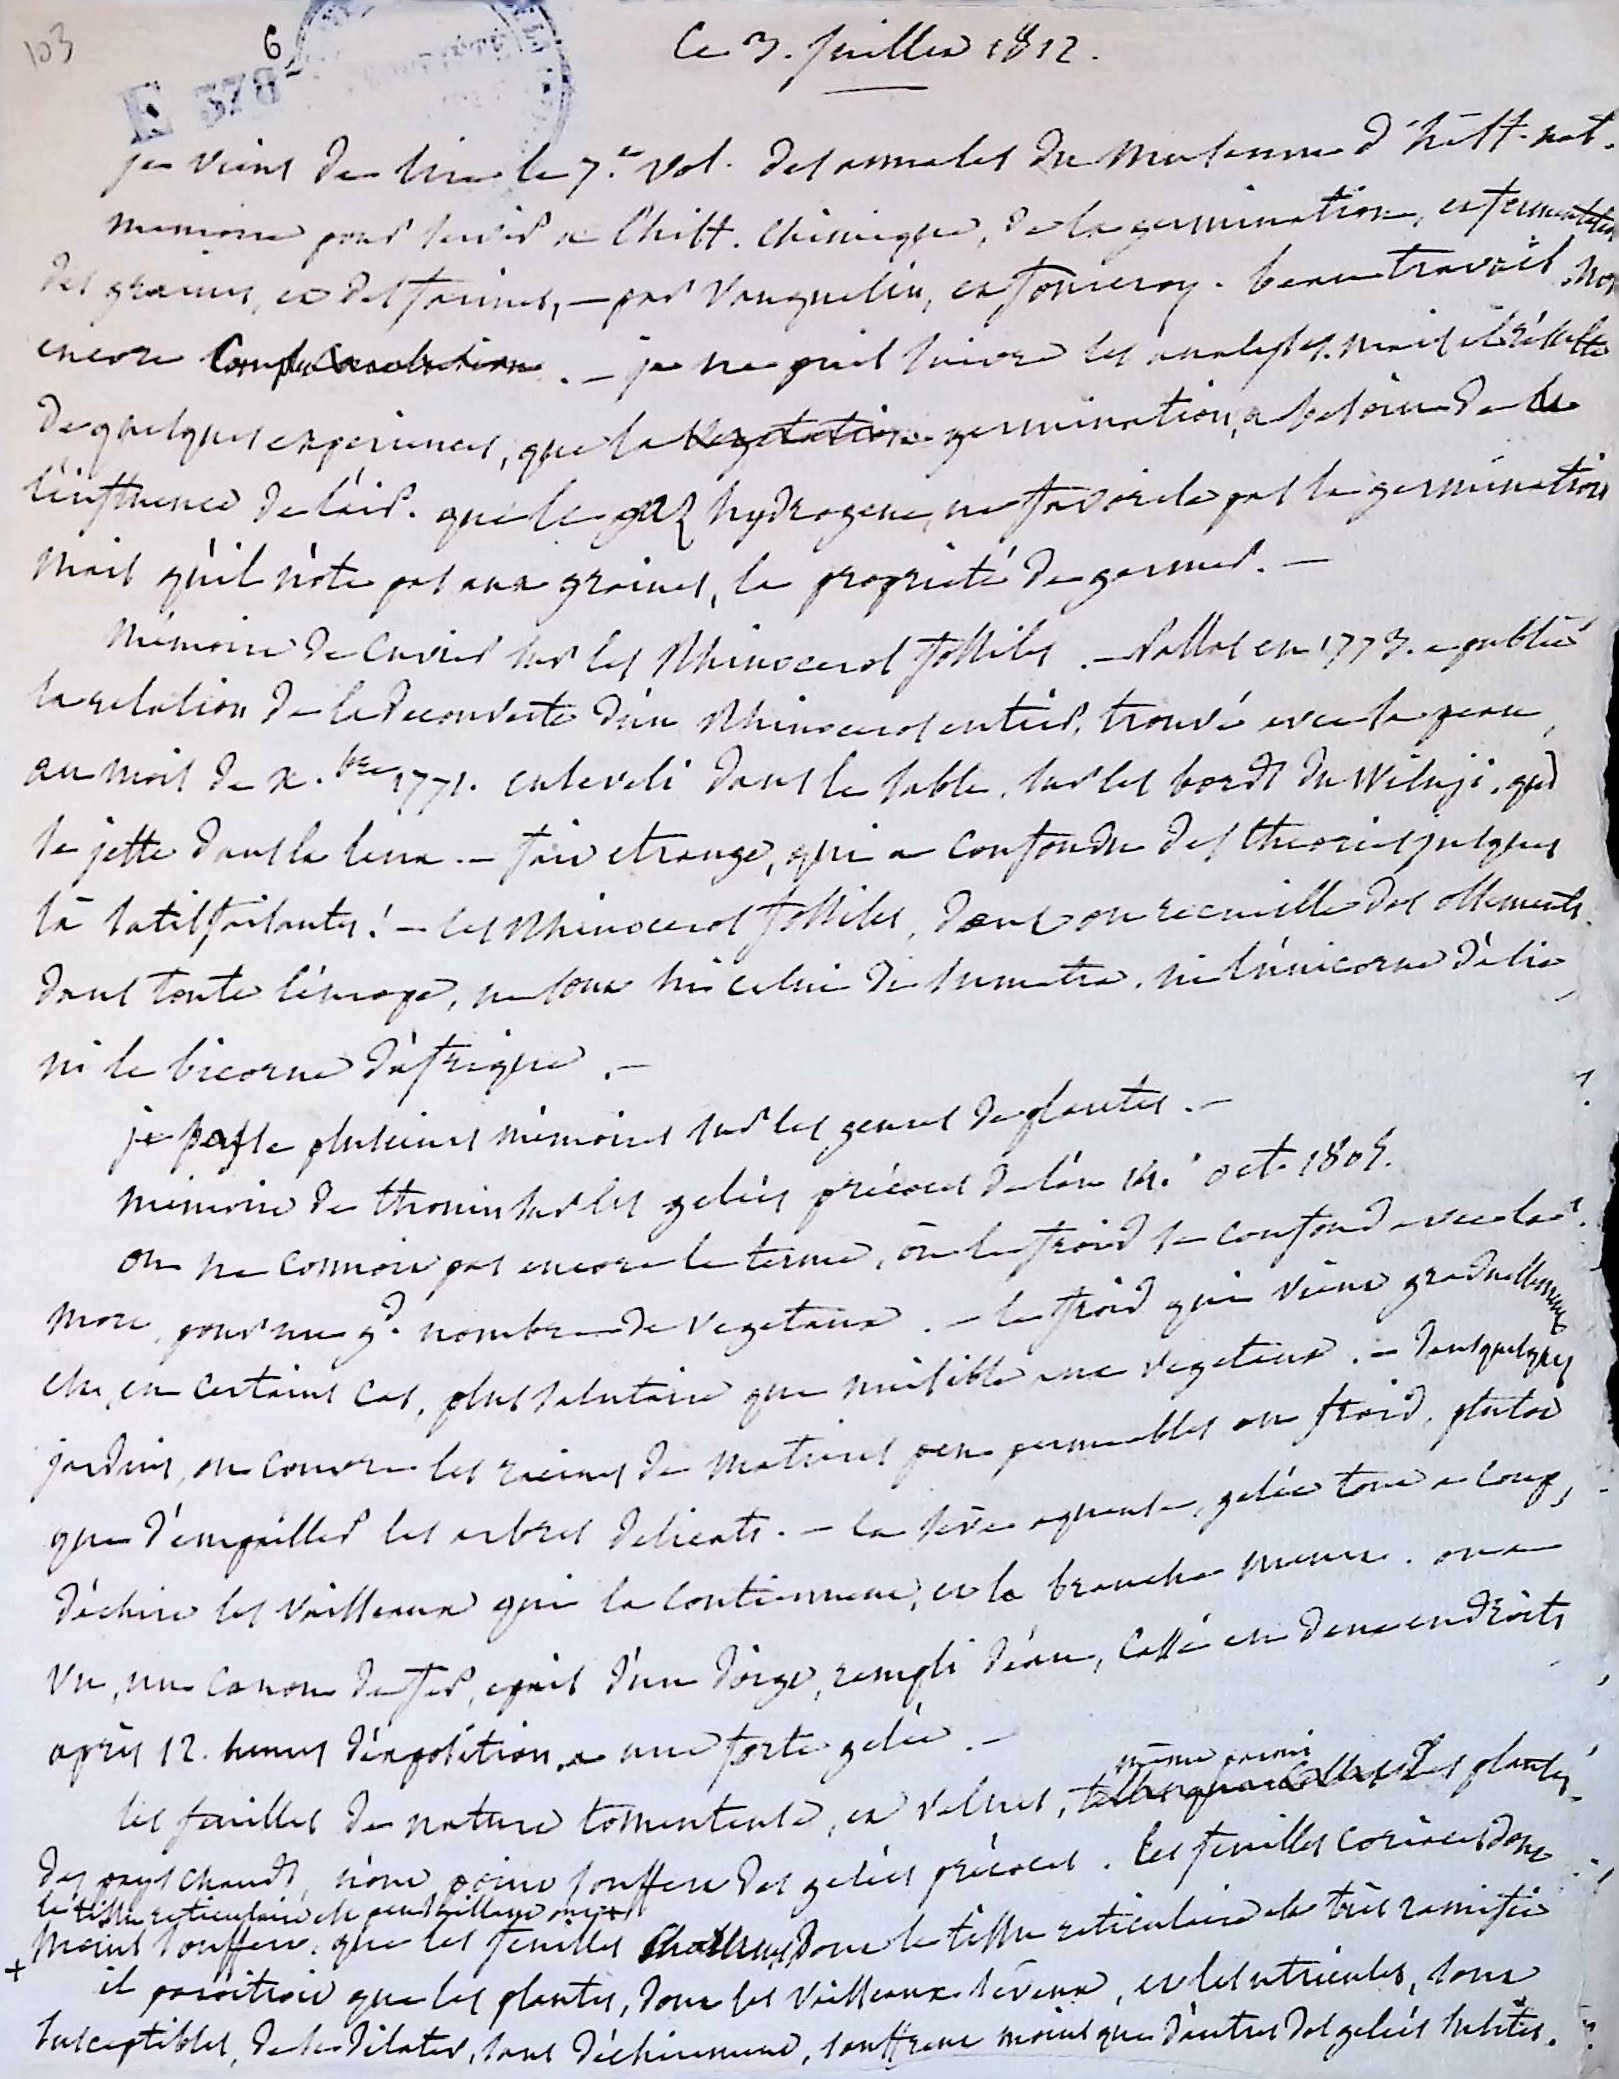 103
6
E 378
Ce 3. juillet 1812.
je viens de lire le 7.e vol. des annales du Museum d'hist. nat.
memoire pour servir a l'hist. chimique, de la germination, et fermentation
des graines, et des farines, — par Vauquelin, et fourcroy. beau travail non
encore . — je ne puis suivre les analyses. mais il résulte
de quelques experiences, que la vegetation germination, a besoin de la
l'influence de l'air. que le gaz hydrogene, ne favorise pas la germination
mais qu'il n'ote pas aux graines, la propriété de germer. —
Mémoire de Cuvier sur les Rhinoceros fossiles. — Pallas en 1773. a publié
la relation de la decouverte d'un Rhinoceros entier, trouvé avec sa peau,
au mois de x.bre 1771. enseveli dans le sable, sur les bords du Wiluji, qui
se jette dans la lena. — fait etrange, qui a confondu des theories jusques
là satisfaisantes! — les Rhinoceros fossiles, dont on recueille des ossements
dans toute l'europe, ne sont ni celui de Sumatra, ni l'unicorne d'asie
ni le bicorne d'afrique. —
je passe plusieurs mémoires sur les genres de plantes. —
Mémoire de thouin sur les gelées précoces de l'an 14. oct. 1805.
on ne connoit pas encore le terme, où le froid se confond avec la
mort, pour un gd. nombre de vegetaux. — le froid qui vient graduellement
est, en certains cas, plus salutaire que nuisible aux vegetaux. — dans quelques
jardins, on couvre les racines de matieres peu permeables au froid, plutot
que d'empailler les arbres delicats. — la séve aqueuse, gelée tout a coup,
déchire les vaisseaux qui la contiennent, et la branche meurt. on a
vu, un canon de fer, epais d'un doigt, rempli d'eau, cassé en deux endroits
après 12. heures d'exposition, a une forte gelée. —
les feuilles de nature tomenteuse, et velues, même parmi les plantes
des pays chauds, n'ont point souffert des gelées précoces. les feuilles coriaces dont
le tissu reticulaire est peu ont
+ moins souffert, que les feuilles dont le tissu reticulaire est très ramifié
il paroitroit que les plantes, dont les vaisseaux séveux, et les utricules, sont
susceptibles, de se dilater, sans déchirement, souffrent moins que d'autres des gelées subites.